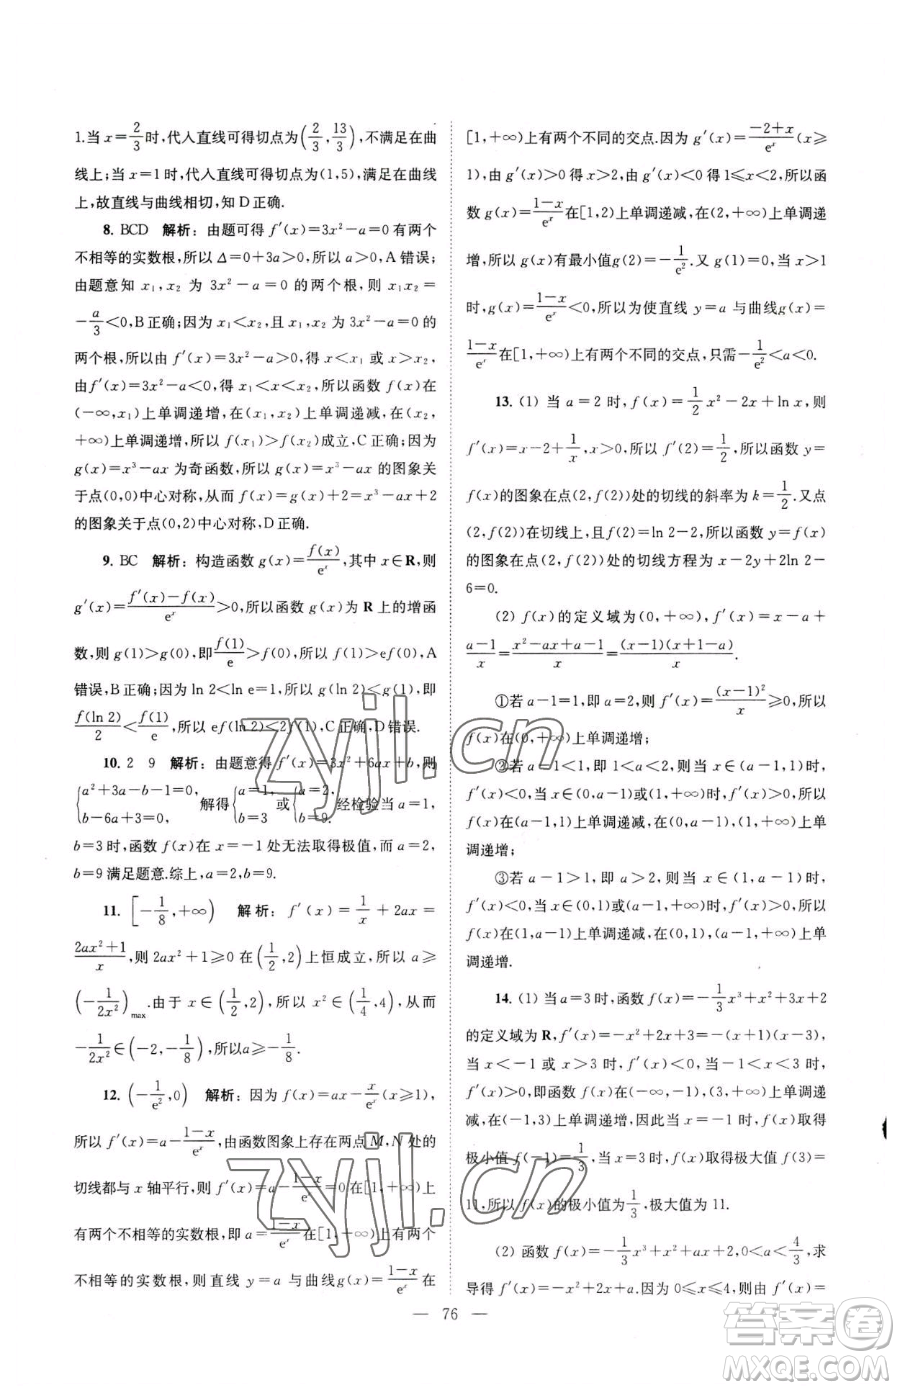 1.当 x=2/3时,代人直线可得切点为(2/3,13/3),不满足在曲
线上;当 x=1时,代入直线可得切点为(1,5),满足在曲线
上,故直线与曲线相切,知 D正确.
8. BCD 解析:由题可得 f′(x)=3x²-a=0 有两个
不相等的实数根,所以 Δ=0+3a>0,所以 a>0,A 错误;
由题意知 x₁,x₂ 为 3x²-a=0 的两个根,则 x₁x₂=
-a/3<0,B正确;因为 x₁<x₂,且 x₁,x₂ 为 3x²-a=0 的
两个根,所以由 f′(x)>0,得 x<x₁ 或 x>x₂,
由 f′(x)=3x²-a<0,得 x₁<x<x₂,所以函数 f(x)在
(-∞,x₁)上单调递增,在(x₁,x₂)上单调递减,在(x₂,
+∞)上单调递增,所以 f(x₁)>f(x₂)成立,C 正确;因为
g(x)=x³-ax 为奇函数,所以 g(x)=x³-ax 的图象关
于点(0,0)中心对称,从而 f(x)=g(x)+2=x³-ax+2
的图象关于点(0,2)中心对称,D正确.
9. BC 解析:构造函数 g(x)=f(x)/eˣ,其中 x∈R,则
g′(x)=(f′(x)-f(x))/eˣ>0,所以函数 g(x)为 R 上的增函
数,则 g(1)>g(0),即f(1)/e>f(0),所以 f(1)>ef(0),A
错误,B 正确;因为 ln 2<ln e=1,所以 g(ln 2)<g(1),即
f(ln 2)/2<f(1)/e,所以 ef(ln 2)<2f(1),C正确,D错误.
10. 2 9 解析:由题意得 f′(x)=3x²+6ax+b,则
{a²+3a-b-1=0, b-6a+3=0, 解得{a=1, b=3 或{a=2, b=9. 经检验当 a=1,
b=3 时,函数 f(x)在 x=-1 处无法取得极值,而 a=2,
b=9 满足题意.综上,a=2,b=9.
11. [-1/8,+∞) 解析:f′(x)=1/x+2ax=
(2ax²+1)/x,则 2ax²+1≥0 在(1/2,2)上恒成立,所以 a≥
(-1/(2x²))max.由于 x∈(1/2,2),所以 x²∈(1/4,4),从而
-1/(2x²)∈(-2,-1/8),所以a≥-1/8.
12. (-1/e²,0) 解析:因为 f(x)=ax-x/eˣ(x≥1),
所以 f′(x)=a-(1-x)/eˣ,由函数图象上存在两点 M,N 处的
切线都与 x 轴平行,则 f′(x)=a-(1-x)/eˣ=0在[1,+∞)上
有两个不相等的实数根,即 a=(1-x)/eˣ在[1,+∞)上有两个
不相等的实数根,则直线 y=a 与曲线g(x)=(1-x)/eˣ在
[1,+∞)上有两个不同的交点.因为 g′(x)=(-2+x)/eˣ(x≥
1),由 g′(x)>0 得 x>2,由 g′(x)<0 得 1≤x<2,所以函
数 g(x)=(1-x)/eˣ在[1,2)上单调递减,在(2,+∞)上单调递
增,所以 g(x)有最小值g(2)=-1/e².又 g(1)=0,当 x>1
时,g(x)=(1-x)/eˣ<0,所以为使直线 y=a 与曲线g(x)=
(1-x)/eˣ在[1,+∞)上有两个不同的交点,只需-1/e²<a<0.
13. (1) 当 a=2 时,f(x)=1/2x²-2x+ln x,则
f′(x)=x-2+1/x,所以 f′(2)=1/2,所以函数 y=
f(x)的图象在点(2,f(2))处的切线的斜率为 k=1/2.又点
(2,f(2))在切线上,且 f(2)=ln 2-2,所以函数 y=f(x)
的图象在点(2,f(2))处的切线方程为 x-2y+2ln 2-
6=0.
(2) f(x)的定义域为(0,+∞),f′(x)=x-a+
(a-1)/x=(x²-ax+a-1)/x=(x-1)(x+1-a)/x.
①若 a-1=1,即 a=2,则 f′(x)=(x-1)²/x≥0,所以
f(x)在(0,+∞)上单调递增;
②若 0<a-1<1,即 1<a<2,当 x∈(a-1,1)时,
f′(x)<0,当 x∈(0,a-1)或 x∈(1,+∞)时,f′(x)>0,所以
f(x)在(a-1,1)上单调递减,在(0,a-1),(1,+∞)上单
调递增;
③若 a-1>1,即 a>2,当 x∈(1,a-1)时,
f′(x)<0,当 x∈(0,1)或 x∈(a-1,+∞)时,f′(x)>0,所以
f(x)在(1,a-1)上单调递减,在(0,1),(a-1,+∞)上单
调递增.
14. (1) 当 a=3 时,函数 f(x)=-1/3x³+x²+3x+2
的定义域为 R,f′(x)=-x²+2x+3=-(x+1)(x-3),
当 x<-1 或 x>3 时,f′(x)<0,当-1<x<3 时,
f′(x)>0,即函数 f(x)在(-∞,-1),(3,+∞)上单调递减,
在(-1,3)上单调递增,因此当 x=-1 时,f(x)取得
极小值 f(-1)=1/3,当 x=3 时,f(x)取得极大值 f(3)=
11,所以 f(x)的极小值为1/3,极大值为 11.
(2) 函数 f(x)=-1/3x³+x²+ax+2,0<a<4/3,求
导得 f′(x)=-x²+2x+a.因为 0≤x≤4,则由 f′(x)=
— 76 —
zyjl.cn
zyjl.cn
答案圈
MXQE.COM